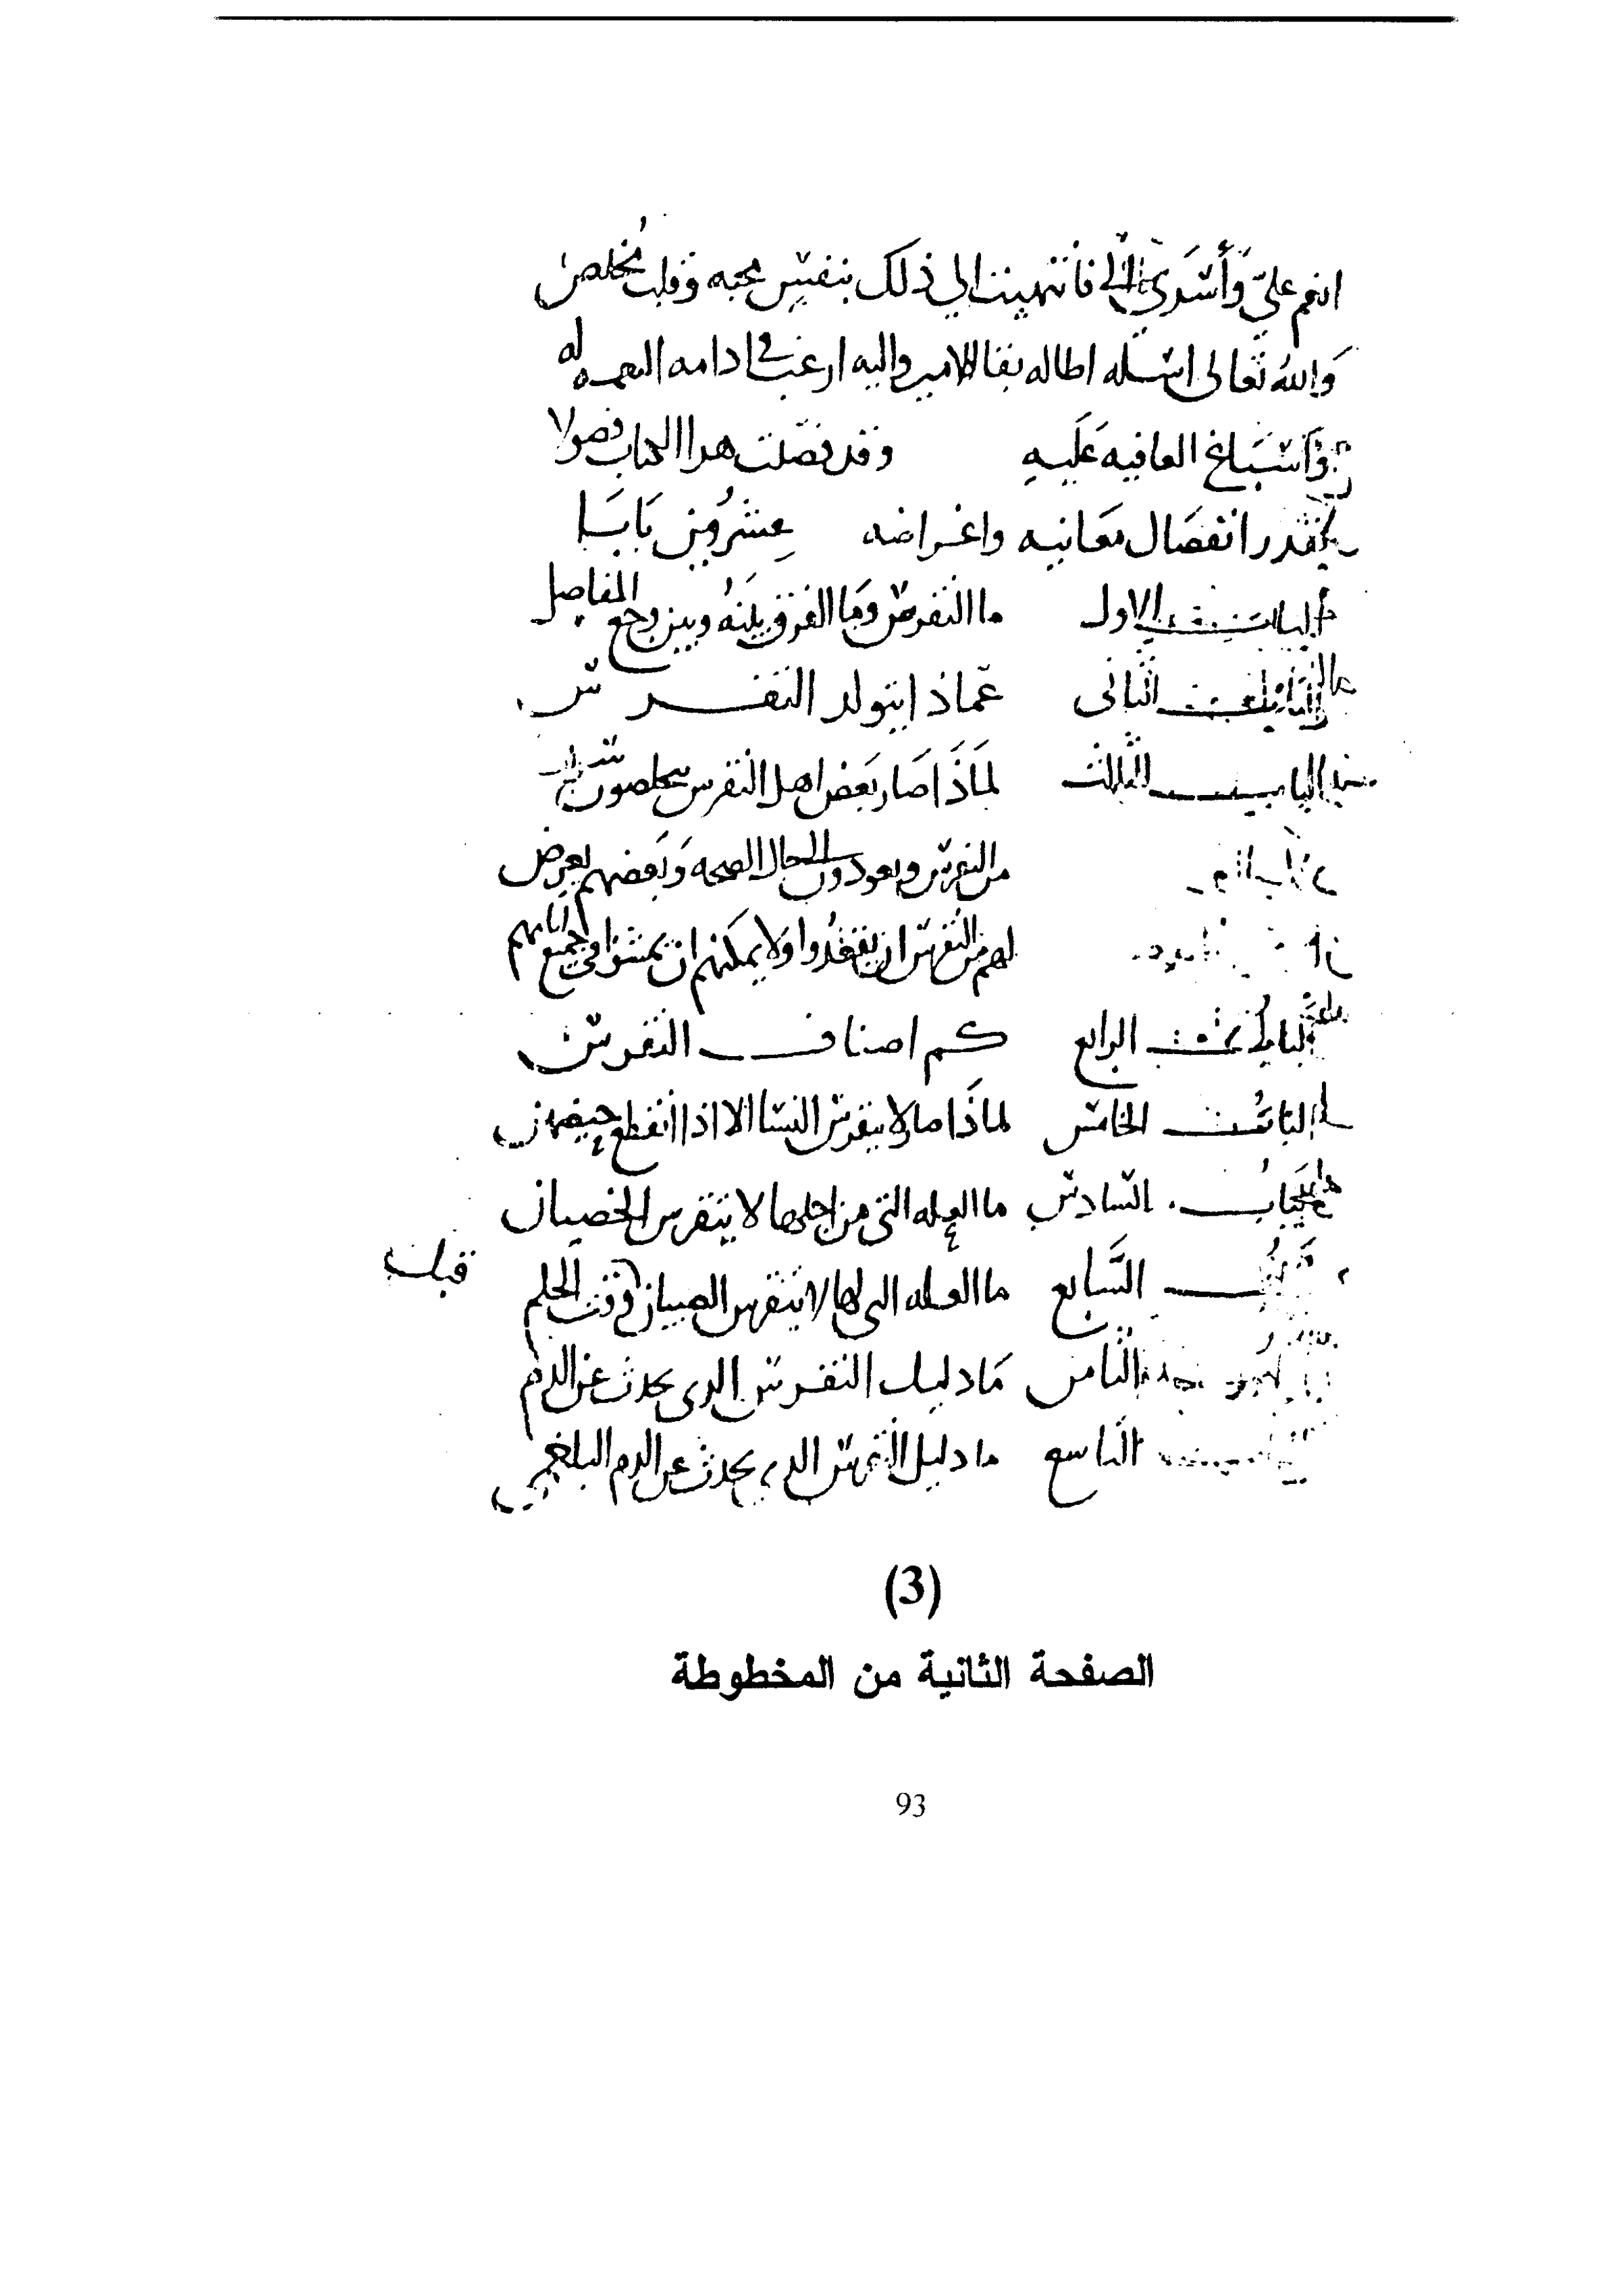 انعم علىّ وأسدى إلى فانتهيت الى ذلك بنفس محبه وقلب مخلص
والله تعالى اسله اطاله بقا الامير واليه ارغب فى ادامه النعمه له
واسباغ العافيه عليه وقد فصلت هدا الكتاب فصولا
بقدر انفصال معانيه واغراضه عشرين بابا
الباب الاول ما النقرس وما الفرق بينه وبين وجع المفاصل
الباب الثانى عماذا يتولد النقرس
الباب الثالث لماذا صار بعض اهل النقرس يتخلصون
من النقرس ويعودون الى حال الصحه وبعضهم يعرض
لهم من النقرس ان يقعدوا ولا يمكنهم ان يمشوا فى جميع
الباب الرابع كم اصناف النقرس
الباب الخامس لماذا صار لا ينقرس النسا الا اذا انقطع حيضهن
الباب السادس ما العله التى من اجلها لا يتنقرس الخصيان
السابع ما العله التى لها لا يتنقرس الصبيان فى وقت الحلم
قبل
الثامن ما دليل النقرس الدى يحدث عن الدم
التاسع ما دليل النقرس الدى يحدث عن الدم البلغمى
(3)
الصفحة الثانية من المخطوطة
93